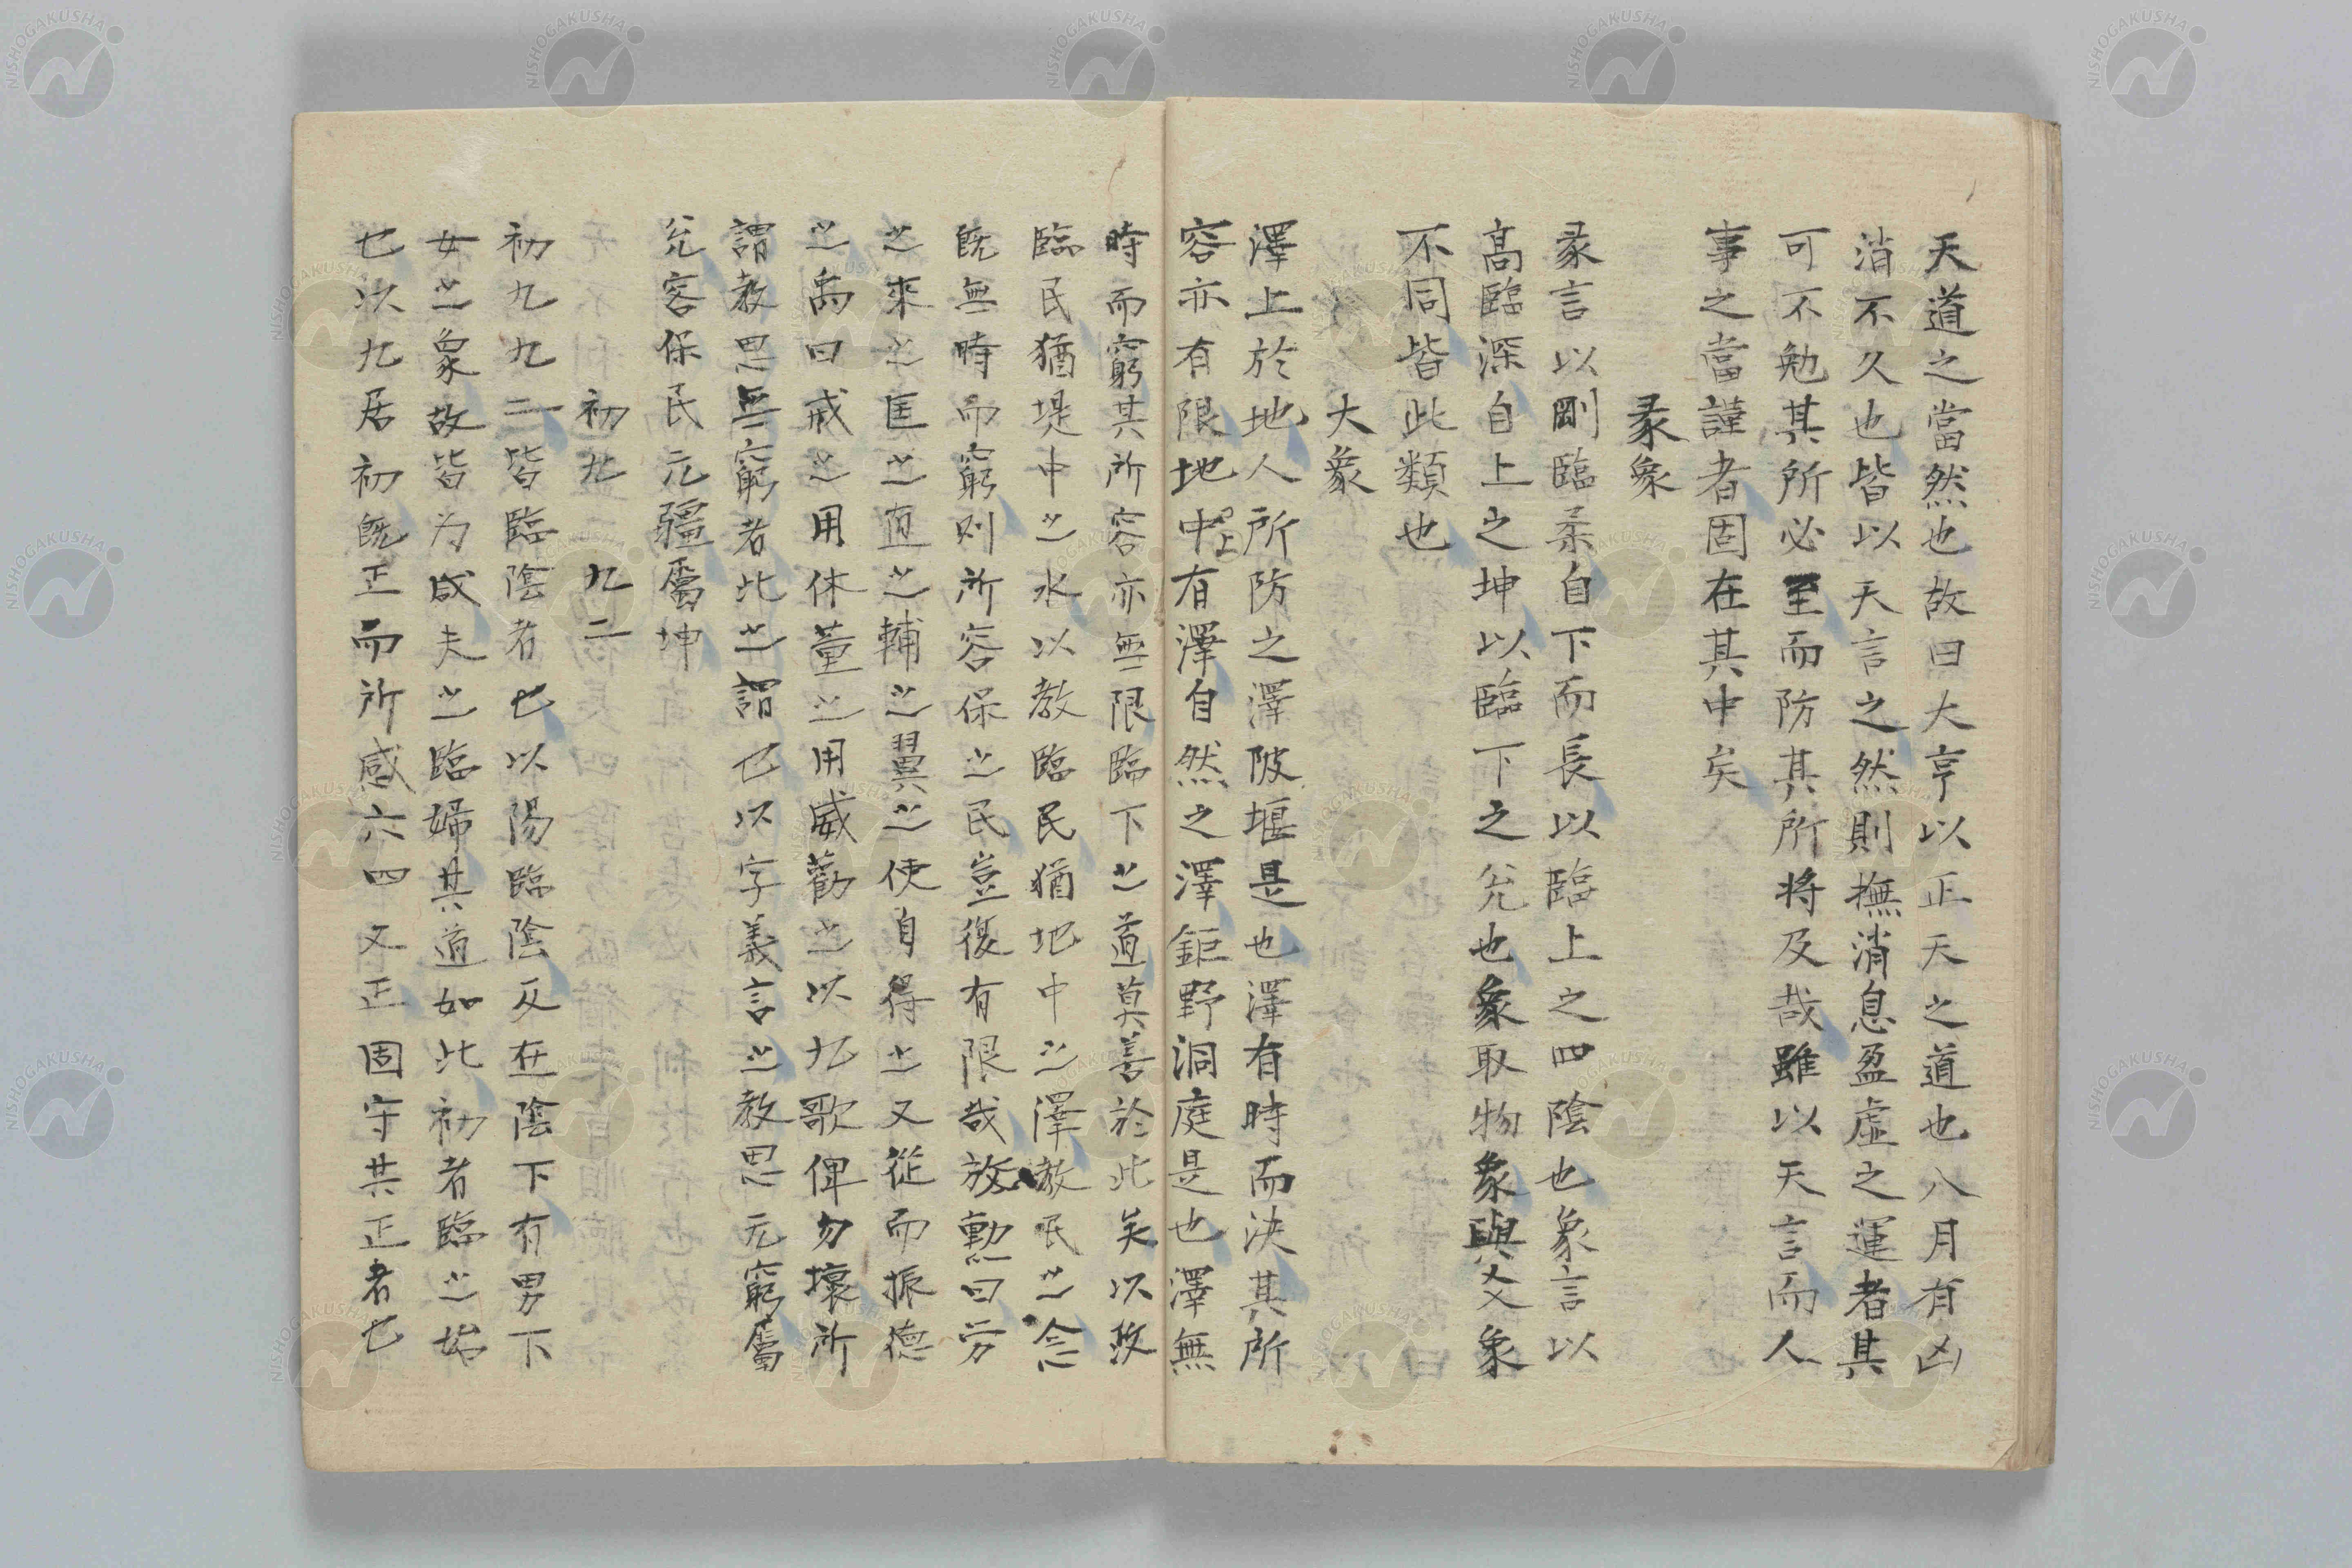 天道之當然也故曰大亨以正天之道也八月有凶
消不久也皆以天言之然則撫消息盈虛之運者其
可不勉其所必至而防其所将及哉雖以天言而人
事之當謹者固在其中矣
彖象
彖言以剛臨柔自下而長以臨上之四陰也象言以
高臨深自上之坤以臨下之兌也彖取物象與爻象
不同皆此類也
大象
澤上於地人所防之澤陂堰是也澤有時而決其所
容亦有限地中上有澤自然之澤鉅野洞庭是也澤無
時而窮其所容亦無限臨下之道莫善於此矣以政
臨民猶堤中之水以教臨民猶地中之澤教民之念
既無時而窮則所容保之民豈復有限哉放勳曰労
之來之匡之直之輔之翼之使自得之又從而振德
之禹曰戒之用休董之用威勸之以九歌俾勿壞所
謂教思無窮者此之謂也以字義言之教思无窮屬
兌容保民无疆屬坤
初九　九二
初九九二皆臨陰者也以陽臨陰反在陰下有男下
女之象故皆为咸夫之臨婦其道如此初者臨之始
也以九居初既正而所感六四又正固守其正者也